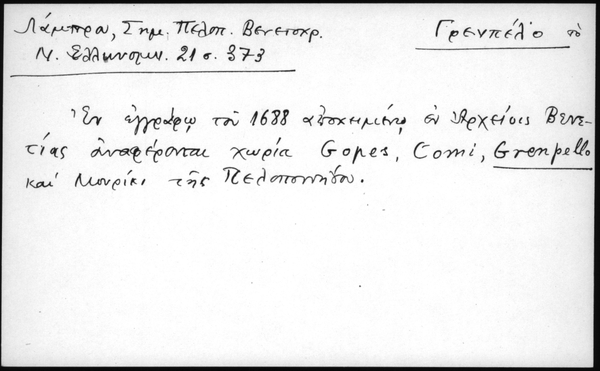 Λάμπρου, Σημ. Πελοπ. Βενετοκρ.
Γρενπέλο τὸ
Ν. Ἑλληνομν. 21 σ. 373
Ἐν ἐγγράφῳ τοῦ 1688 ἀποκειμένῳ ἐν Ἀρχείοις Βενε-
τίας ἀναφέρονται χωρία Gopes, Comi, Grenpello
καὶ Μουρίκι τῆς Πελοποννήσου.